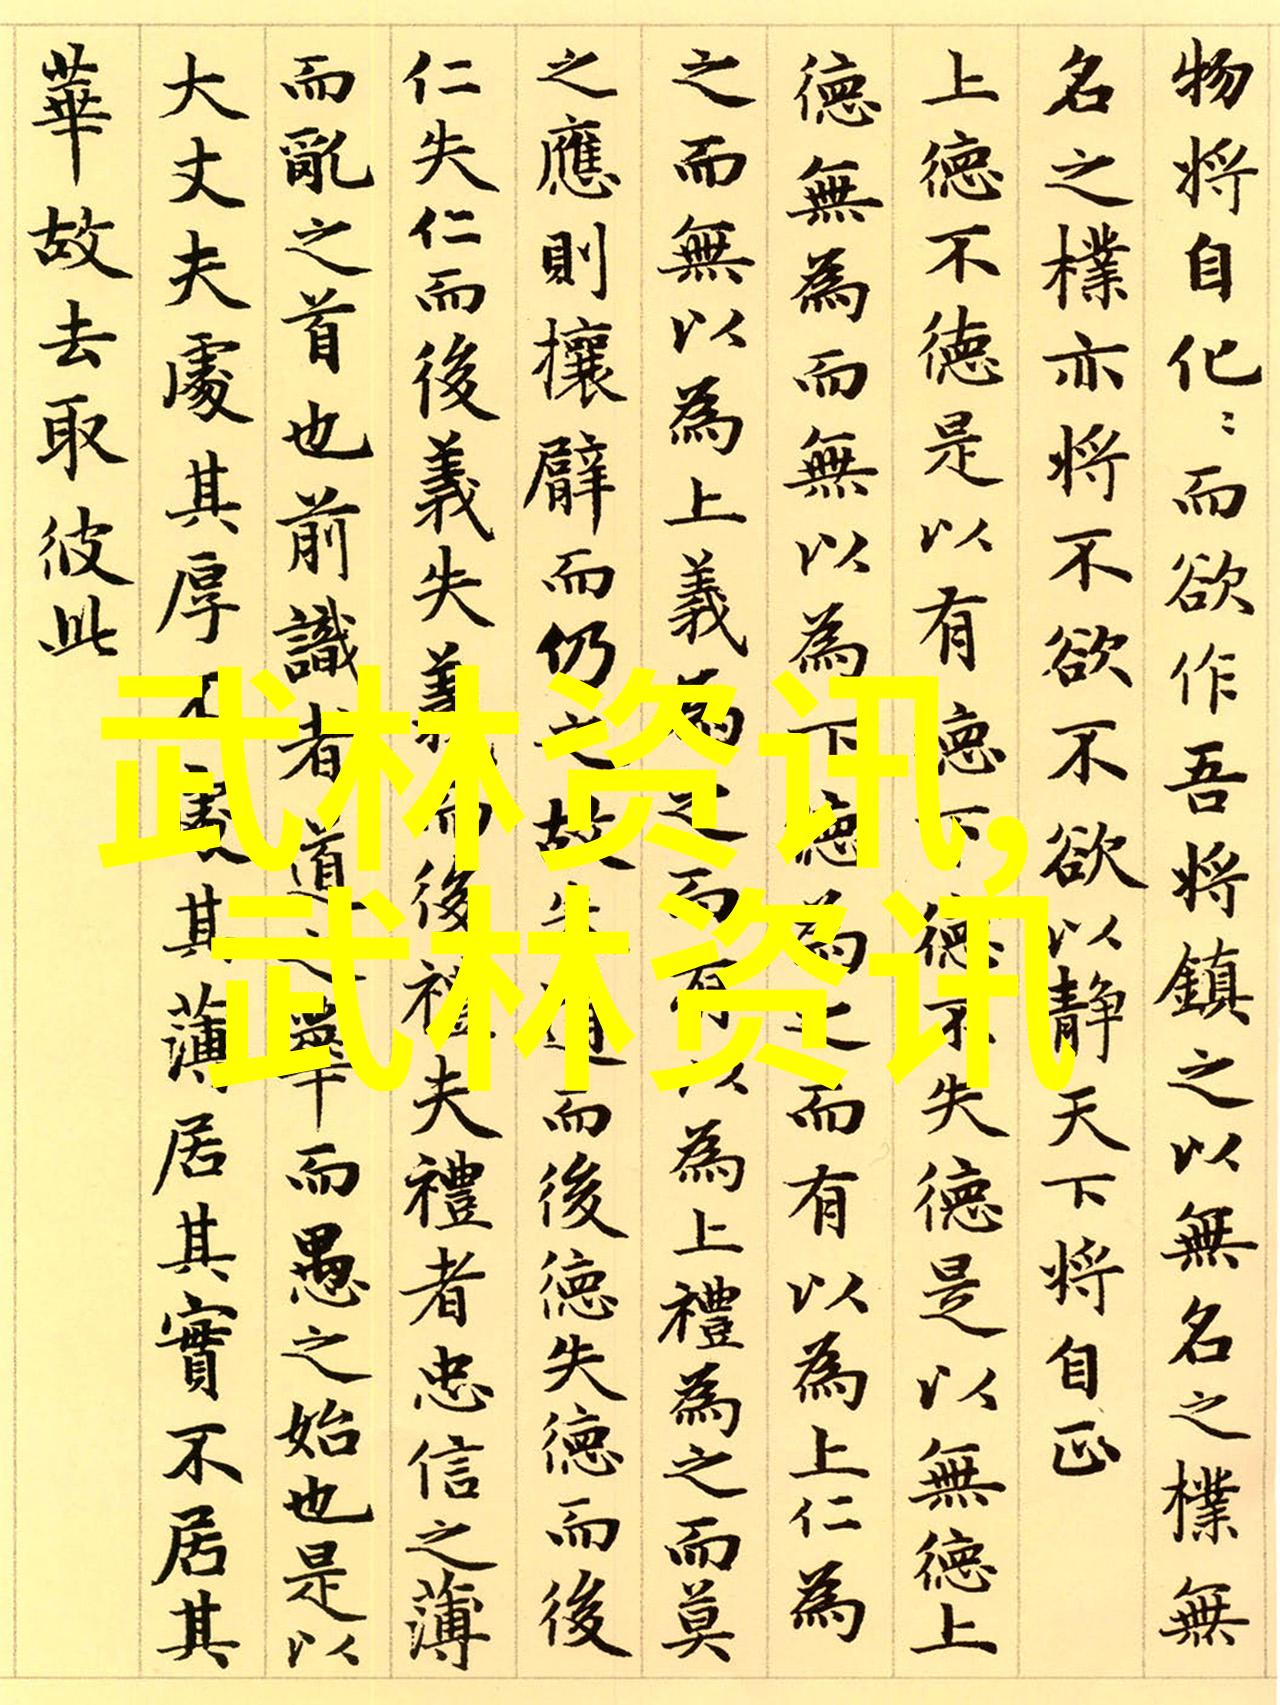 物将自化〻而欲作吾将鎮之以無名之樸無
名之樸亦将不欲不欲以静天下将自正
上德不德是以有德下德不失德是以無德上
德無為而無以為下德為之而有以為上仁為
之而無以為上義為之而有以為上禮為之而莫
之應則攘臂而仍之故失道而後德失德而後
仁失仁而後義失義而後禮夫禮者忠信之薄
而亂之首也前識者道之華而愚之始也是以
大丈夫處其厚不處其薄居其實不居其
華故去取彼此
武林资讯,
武林资讯